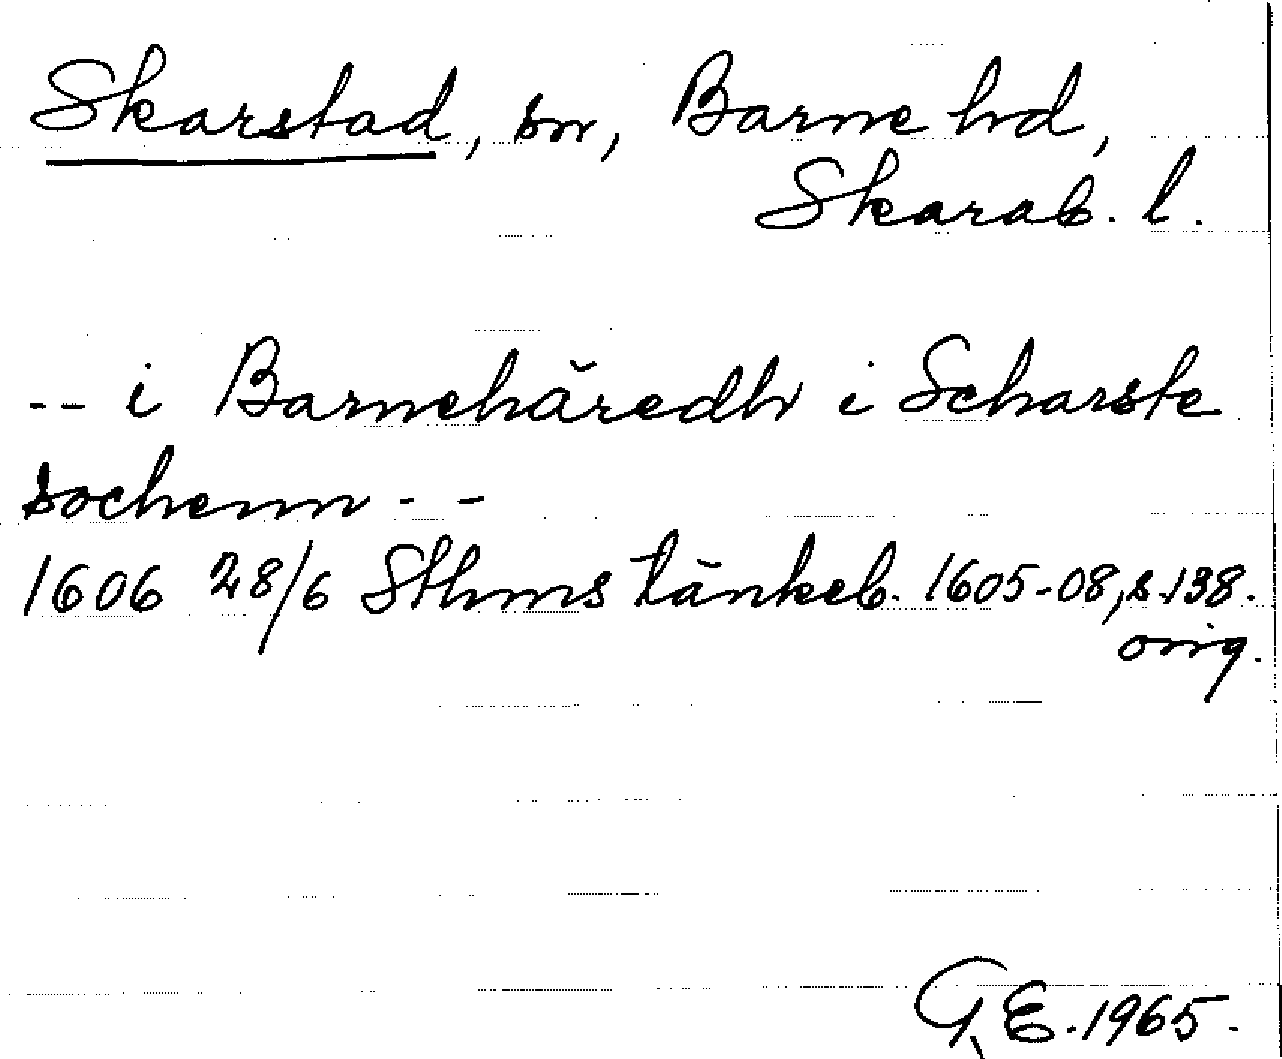 Skarstad, sn, Barne hd,
Skarab. l.
-- i Barnehäredh i Scharste
sochenn --
1606 28/6 Sthms tänkeb. 1605-08, s. 138.
orig.
G.E. 1965.